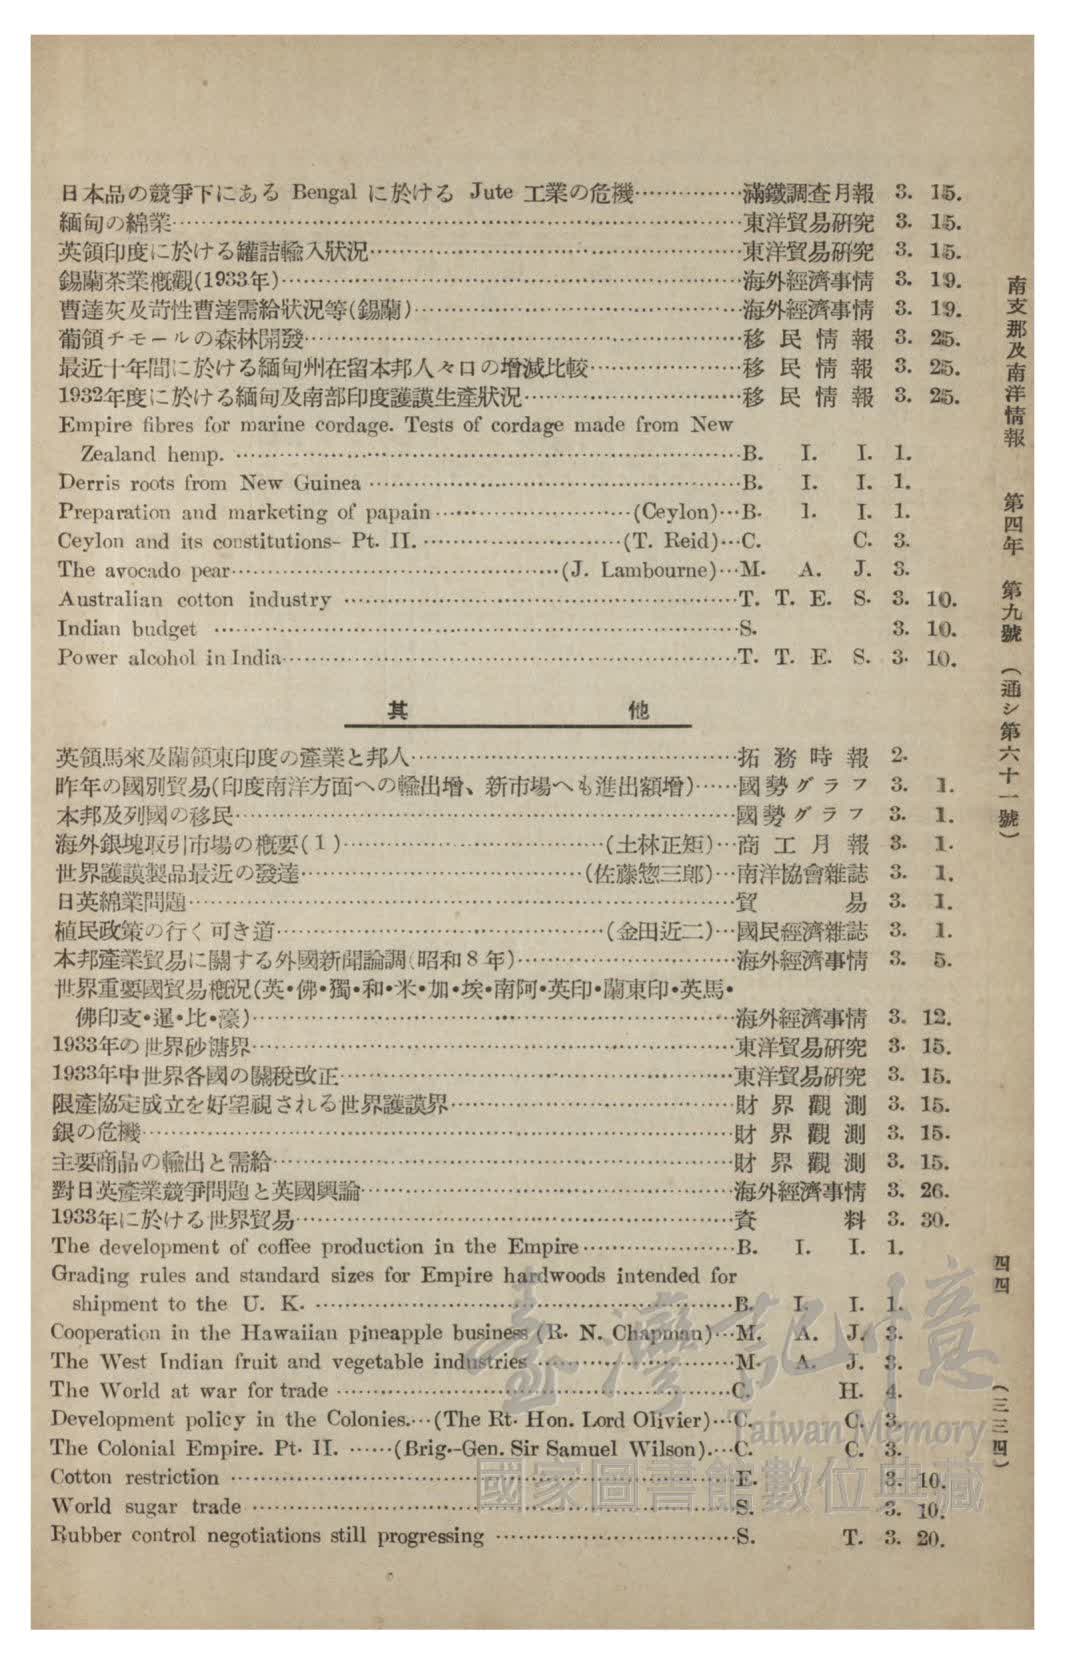 南支那及南洋情報 第四年 第九號 (通シ第六十一號)
四四
(三三四)
日本品の競爭下にある Bengal に於ける Jute 工業の危機……………滿鐵調査月報 3. 15.
緬甸の綿業……………東洋貿易研究 3. 15.
英領印度に於ける罐詰輸入狀況……………東洋貿易研究 3. 15.
錫蘭茶業槪觀(1933年)……………海外經濟事情 3. 19.
曹達灰及苛性曹達需給狀況等(錫蘭)……………海外經濟事情 3. 19.
葡領チモールの森林開發……………移民情報 3. 25.
最近十年間に於ける緬甸州在留本邦人々口の增減比較……………移民情報 3. 25.
1932年度に於ける緬甸及南部印度護謨生產狀況……………移民情報 3. 25.
Empire fibres for marine cordage. Tests of cordage made from New
Zealand hemp. ……………B. I. I. 1.
Derris roots from New Guinea ……………B. I. I. 1.
Preparation and marketing of papain……………(Ceylon)…B. I. I. 1.
Ceylon and its constitutions- Pt. II. ……………(T. Reid)…C. C. 3.
The avocado pear……………(J. Lambourne)…M. A. J. 3.
Australian cotton industry ……………T. T. E. S. 3. 10.
Indian budget ……………S. 3. 10.
Power alcohol in India……………T. T. E. S. 3. 10.
其他
英領馬來及蘭領東印度の產業と邦人……………拓務時報 2.
昨年の國別貿易(印度南洋方面への輸出增、新市場へも進出額增)……國勢グラフ 3. 1.
本邦及列國の移民……………國勢グラフ 3. 1.
海外銀塊取引市場の槪要(1)……………(土林正矩)…商工月報 3. 1.
世界護謨製品最近の發達……………(佐藤惣三郎)…南洋協會雜誌 3. 1.
日英綿業問題……………貿易 3. 1.
植民政策の行く可き道……………(金田近二)…國民經濟雜誌 3. 1.
本邦產業貿易に關する外國新聞論調(昭和8年)……………海外經濟事情 3. 5.
世界重要國貿易槪況(英•佛•獨•和•米•加•埃•南阿•英印•蘭東印•英馬•
佛印支•暹•比•濠)……………海外經濟事情 3. 12.
1933年の世界砂糖界……………東洋貿易研究 3. 15.
1933年中世界各國の關稅改正……………東洋貿易研究 3. 15.
限產協定成立を好望視される世界護謨界……………財界觀測 3. 15.
銀の危機……………財界觀測 3. 15.
主要商品の輸出と需給……………財界觀測 3. 15.
對日英產業競爭問題と英國輿論……………海外經濟事情 3. 26.
1933年に於ける世界貿易……………資料 3. 30.
The development of coffee production in the Empire……………B. I. I. 1.
Grading rules and standard sizes for Empire hardwoods intended for
shipment to the U. K. ……………B. I. I. 1.
Cooperation in the Hawaiian pineapple business (R. N. Chapman)…M. A. J. 3.
The West Indian fruit and vegetable industries ……………M. A. J. 3.
The World at war for trade ……………C. H. 4.
Development policy in the Colonies.…(The Rt. Hon. Lord Olivier)…C. C. 3.
The Colonial Empire. Pt. II. ……(Brig.-Gen. Sir Samuel Wilson).…C. C. 3.
Cotton restriction ……………E. 3. 10.
World sugar trade ……………S. 3. 10.
Rubber control negotiations still progressing ……………S. T. 3. 20.
臺灣記憶
Taiwan Memory
國家圖書館數位典藏